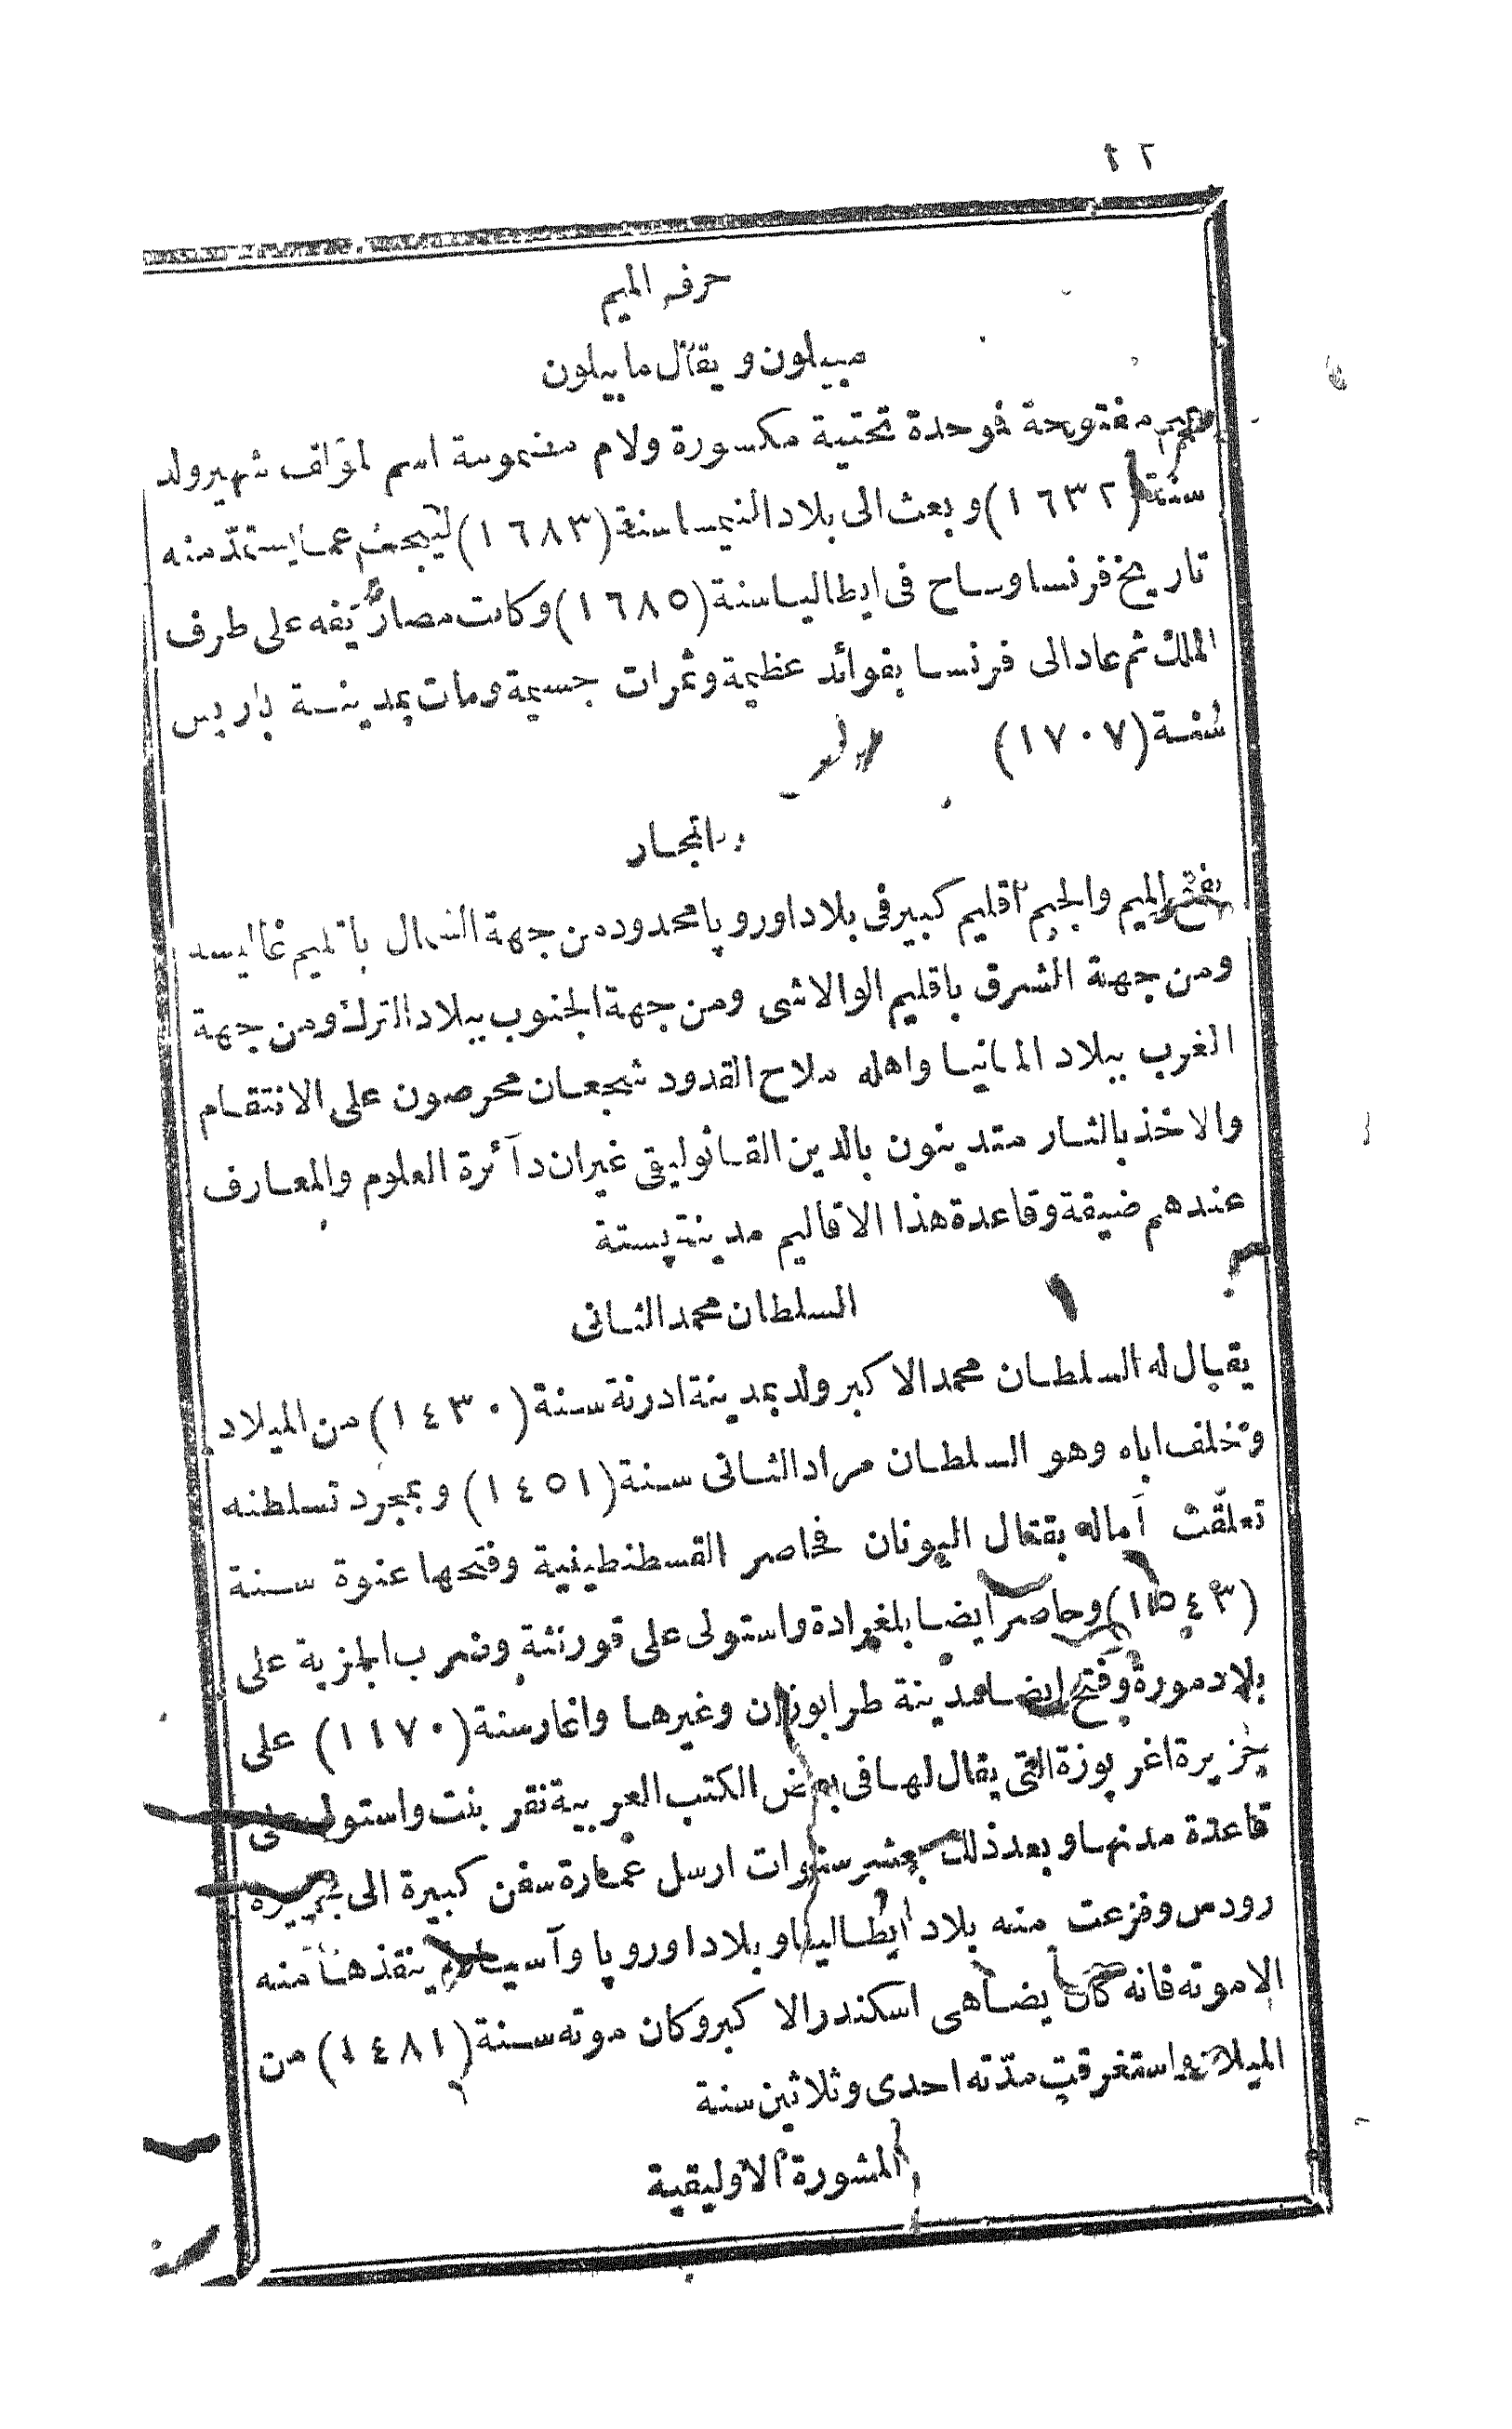 ٤٢
حرف الميم
مبيلون ويقال مابيلون
ميم مفتوحة فوحدة تحتية مكسورة ولام مضمومة اسم لمؤلف شهير ولد
سنة (١٦٣٢) وبعث الى بلاد النيمسا سنة (١٦٨٣) ليبحث عما يستمدّ منه
تاريخ فرنسا وساح فى ايطاليا سنة (١٦٨٥) وكانت مصاريفه على طرف
الملك ثم عاد الى فرنسا بفوائد عظيمة وثمرات جسيمة ومات بمدينة باريس
سنة (١٧٠٧)
المجار
بفتح الميم والجيم اقليم كبير فى بلاد اوروپا محدود من جهة الشمال باقليم غاليسه
ومن جهة الشرق باقليم الوالاشى ومن جهة الجنوب ببلاد الترك ومن جهة
الغرب ببلاد المانيا واهله ملاح القدود شجعان محرصون على الانتقام
والاخذ بالثار متدينون بالدين القاثوليقى غير ان دآئرة العلوم والمعارف
عندهم ضيقة وقاعدة هذا الاقاليم مدينة پستة
السلطان محمد الثانى
يقال له السلطان محمد الاكبر ولد بمدينة ادرنة سنة (١٤٣٠) من الميلاد
وخلف اباه وهو السلطان مراد الثانى سنة (١٤٥١) وبمجرد تسلطنه
تعلقت آماله بقتال اليونان فحاصر القسطنطينية وفتحها عنوة سنة
(١٤٥٣) وحاصر ايضا بلغرادة واستولى على قورنثة وضرب الجزية على
بلاد مورة وفتح ايضا مدينة طرابوزان وغيرها واغار سنة (١١٧٠) على
جزيرة اغربوزة التى يقال لها فى بعض الكتب العربية نقر بنت واستولى على
قاعدة مدنها وبعد ذلك بعشر سنوات ارسل عمارة سفن كبيرة الى جزيرة
رودس وفزعت منه بلاد ايطاليا وبلاد اوروپا وآسيا ولم ينقذها منه
الا موته فانه كان يضاهى اسكندر الاكبر وكان موته سنة (١٤٨١) من
الميلاد واستغرقت مدّته احدى وثلاثين سنة
المشورة الاوليقية